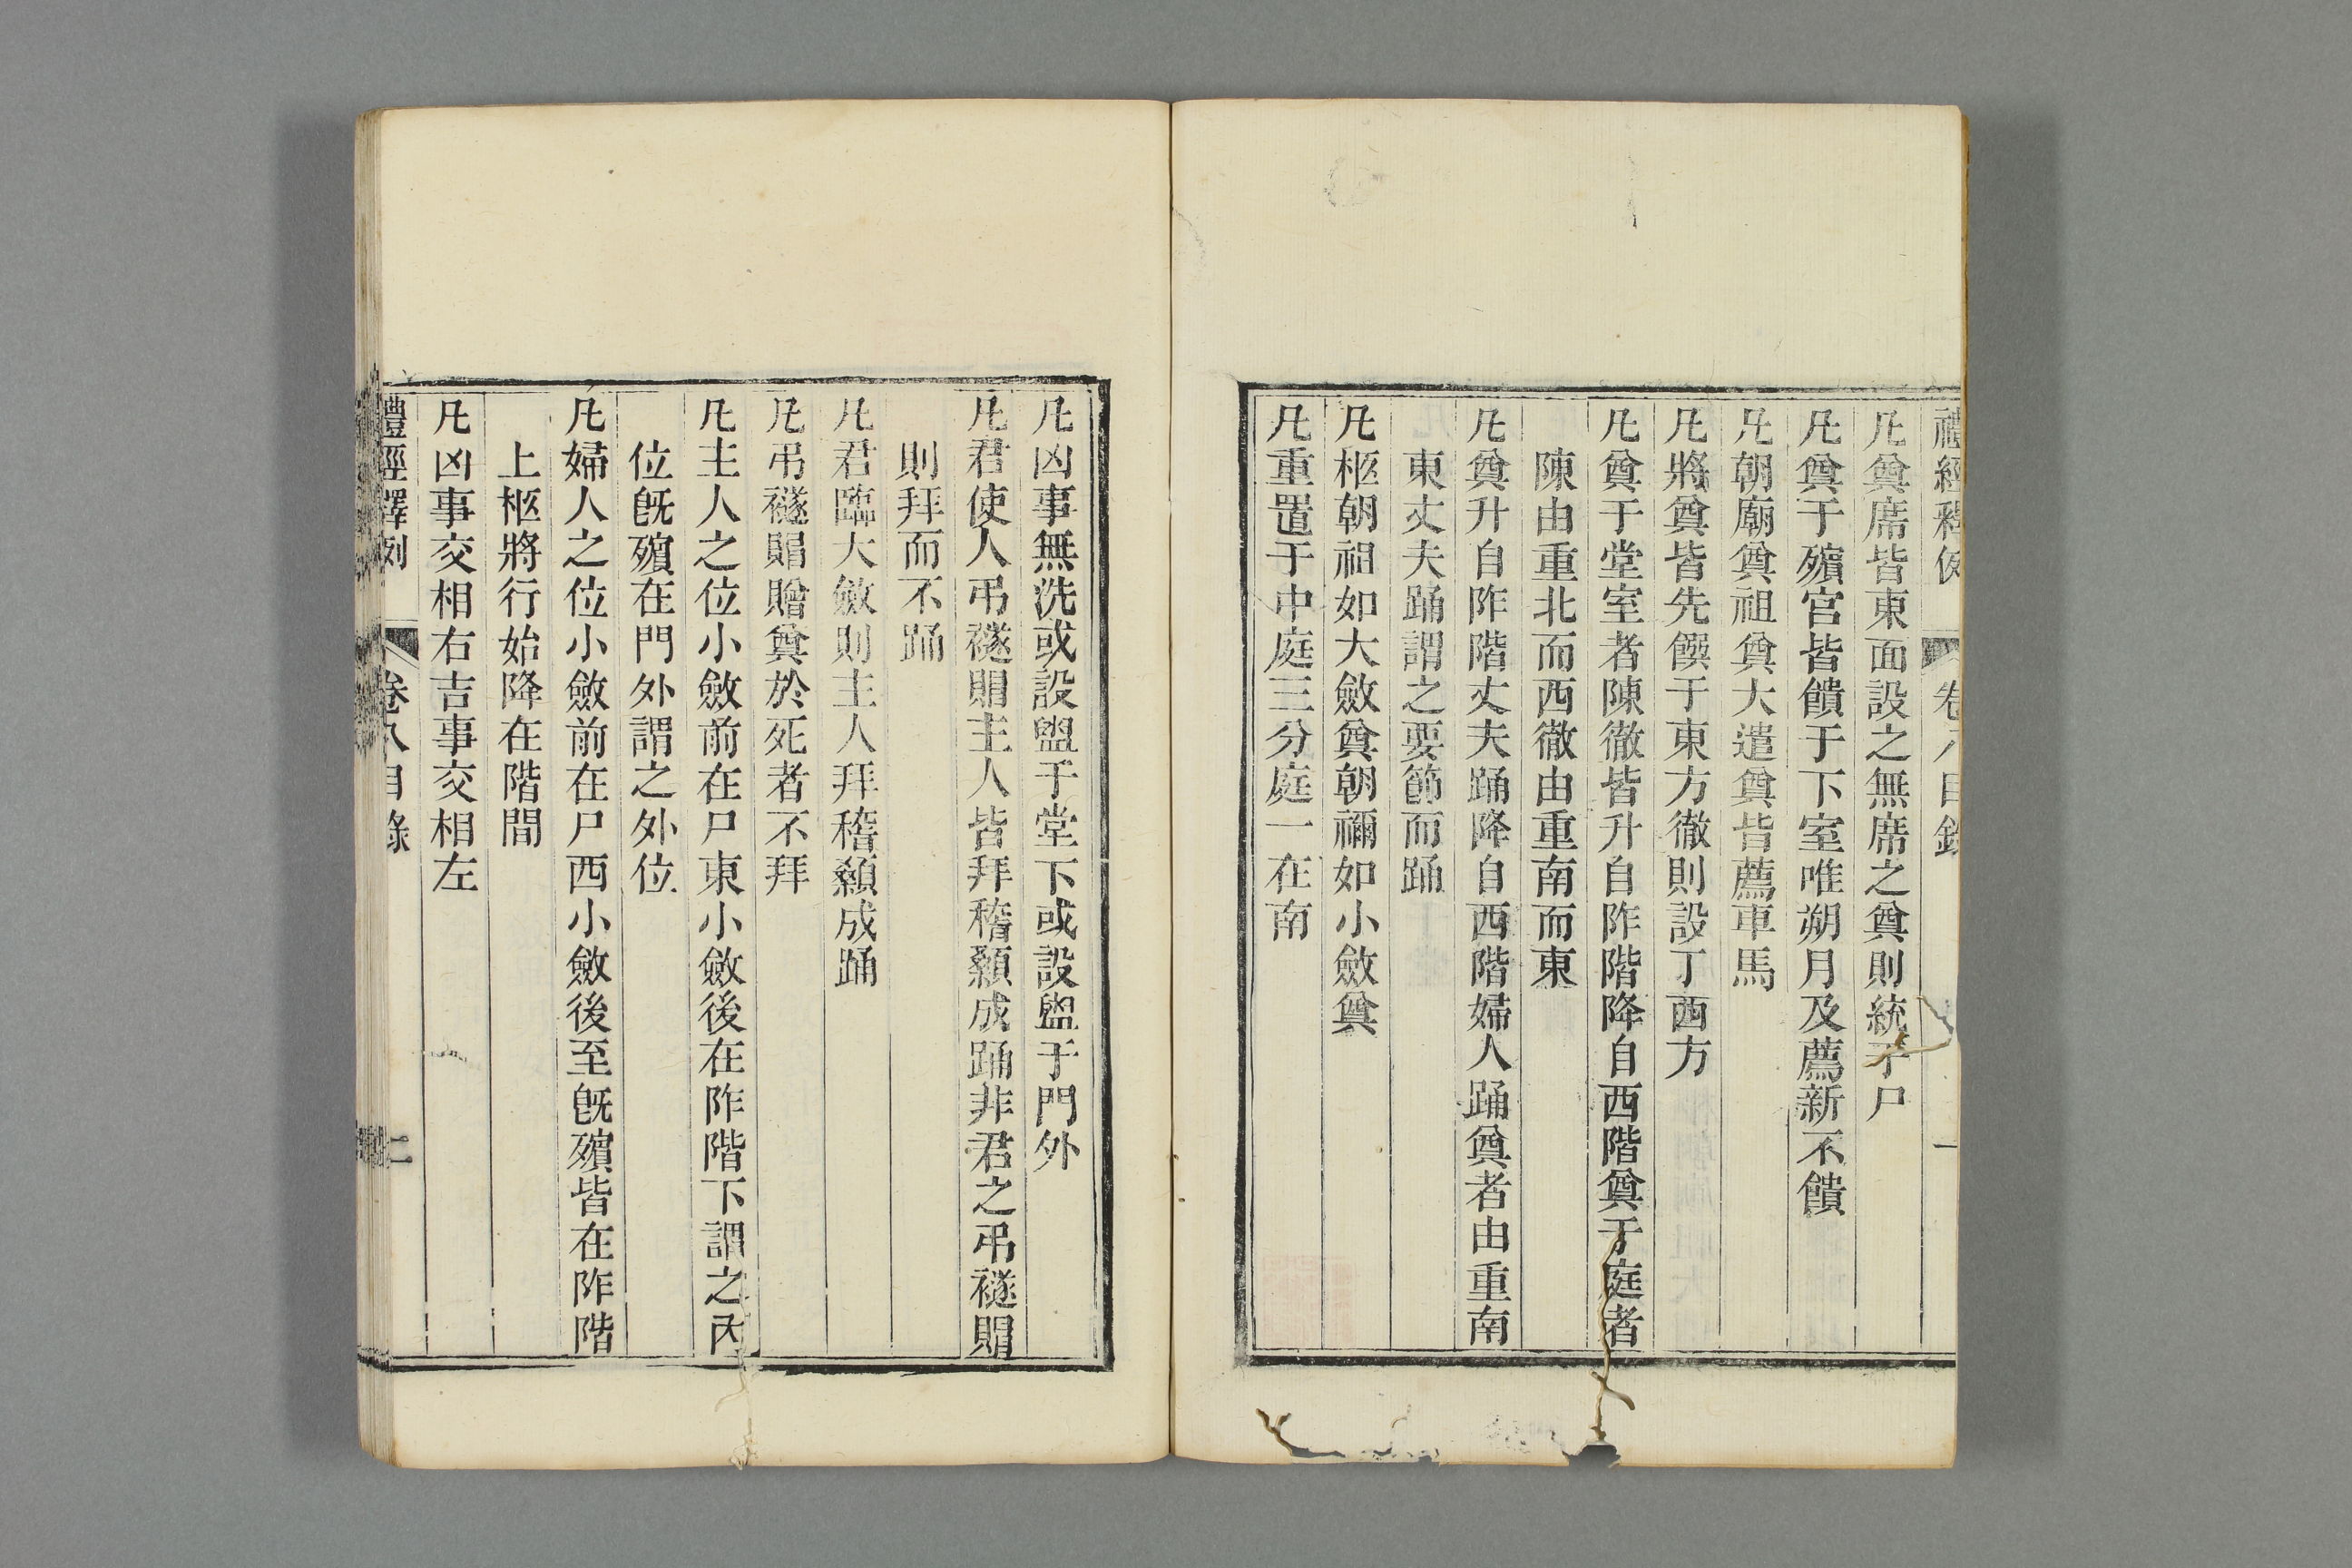 禮經釋例 卷八目錄 一
凡奠席皆東面設之無席之奠則統于尸
凡奠于殯宮皆饋于下室唯朔月及薦新不饋
凡朝廟奠祖奠大遣奠皆薦車馬
凡將奠皆先饌于東方徹則設于西方
凡奠于堂室者陳徹皆升自阼階降自西階奠于庭者
陳由重北而西徹由重南而東
凡奠升自阼階丈夫踊降自西階婦人踊奠者由重南
東丈夫踊謂之要節而踊
凡柩朝祖如大斂奠朝禰如小斂奠
凡重置于中庭三分庭一在南
凡凶事無洗或設盥于堂下或設盥于門外
凡君使人弔襚賵主人皆拜稽顙成踊非君之弔襚賵
則拜而不踊
凡君臨大斂則主人拜稽顙成踊
凡弔襚賵贈奠於死者不拜
凡主人之位小斂前在尸東小斂後在阼階下謂之內
位旣殯在門外謂之外位
凡婦人之位小斂前在尸西小斂後至旣殯皆在阼階
上柩將行始降在階間
凡凶事交相右吉事交相左
禮經釋例 卷八目錄 二